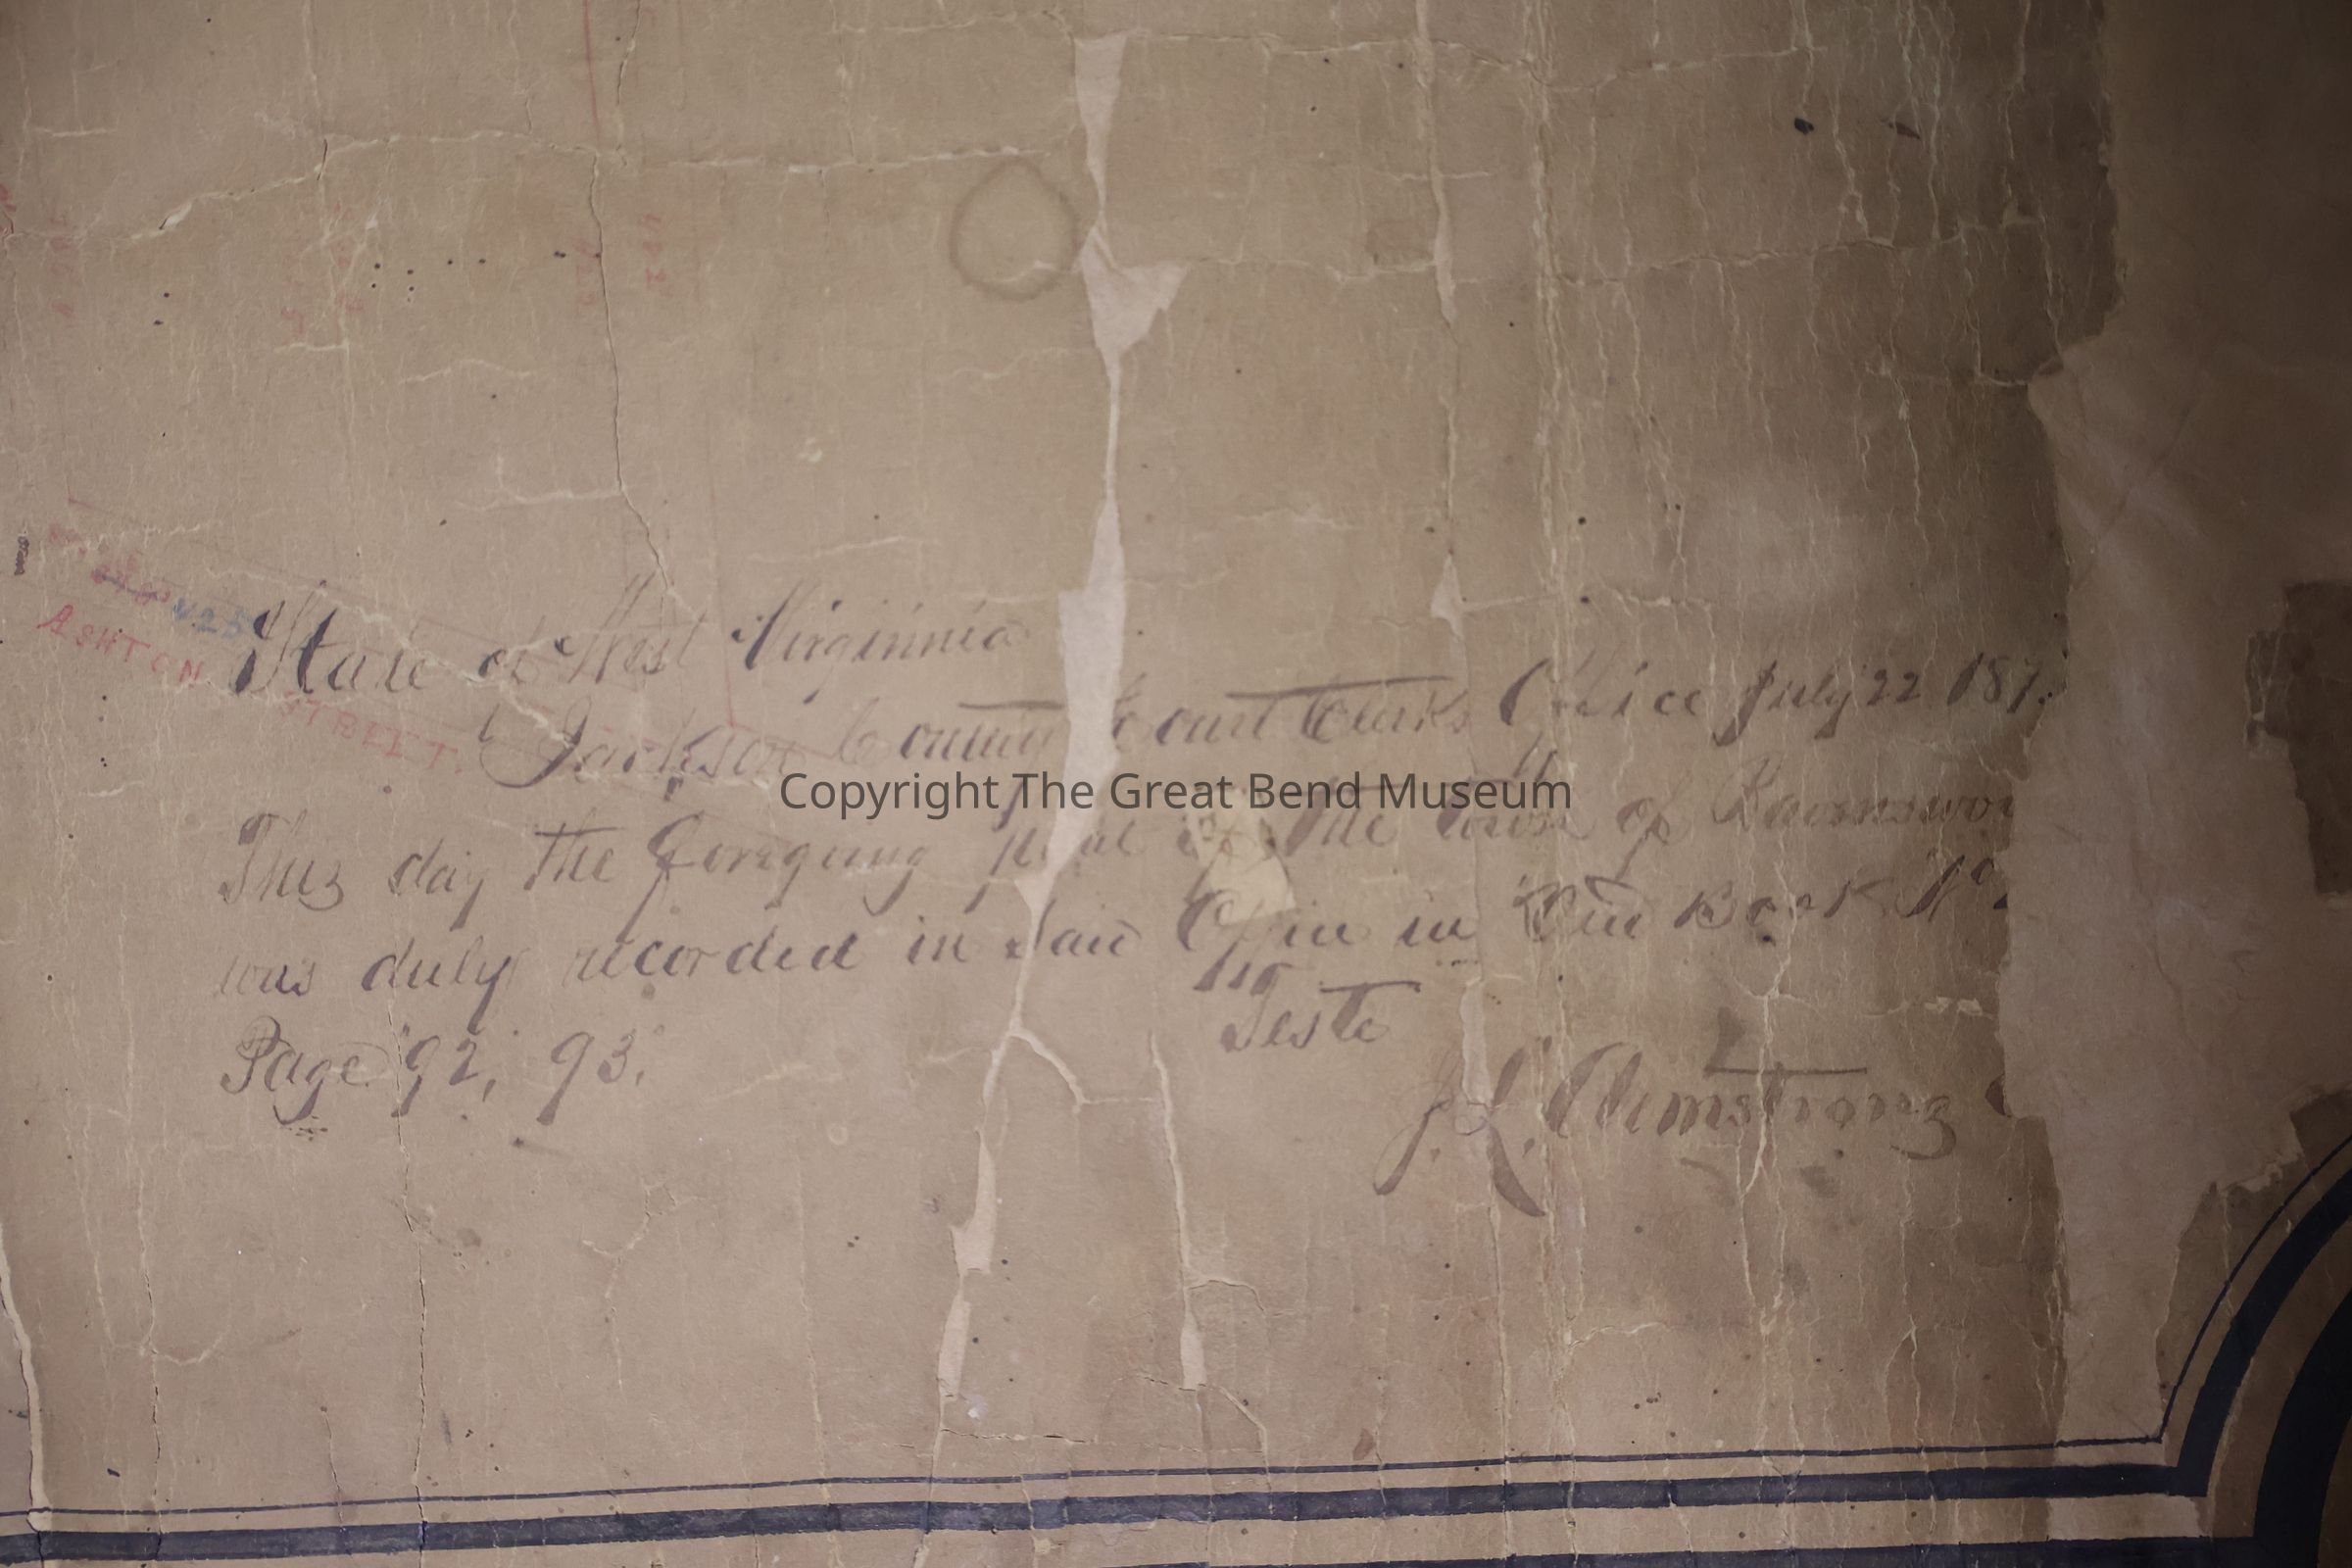 ASHTON STREET.
State of West Virginnia
Jackson County Court Clerks Office July 22 187
Copyright The Great Bend Museum
This day the foregoing plat of the town of Ravenswo
was duly recorded in said Office in Deed Book No
Page 92, 93,
Teste
J.L. Armstrong